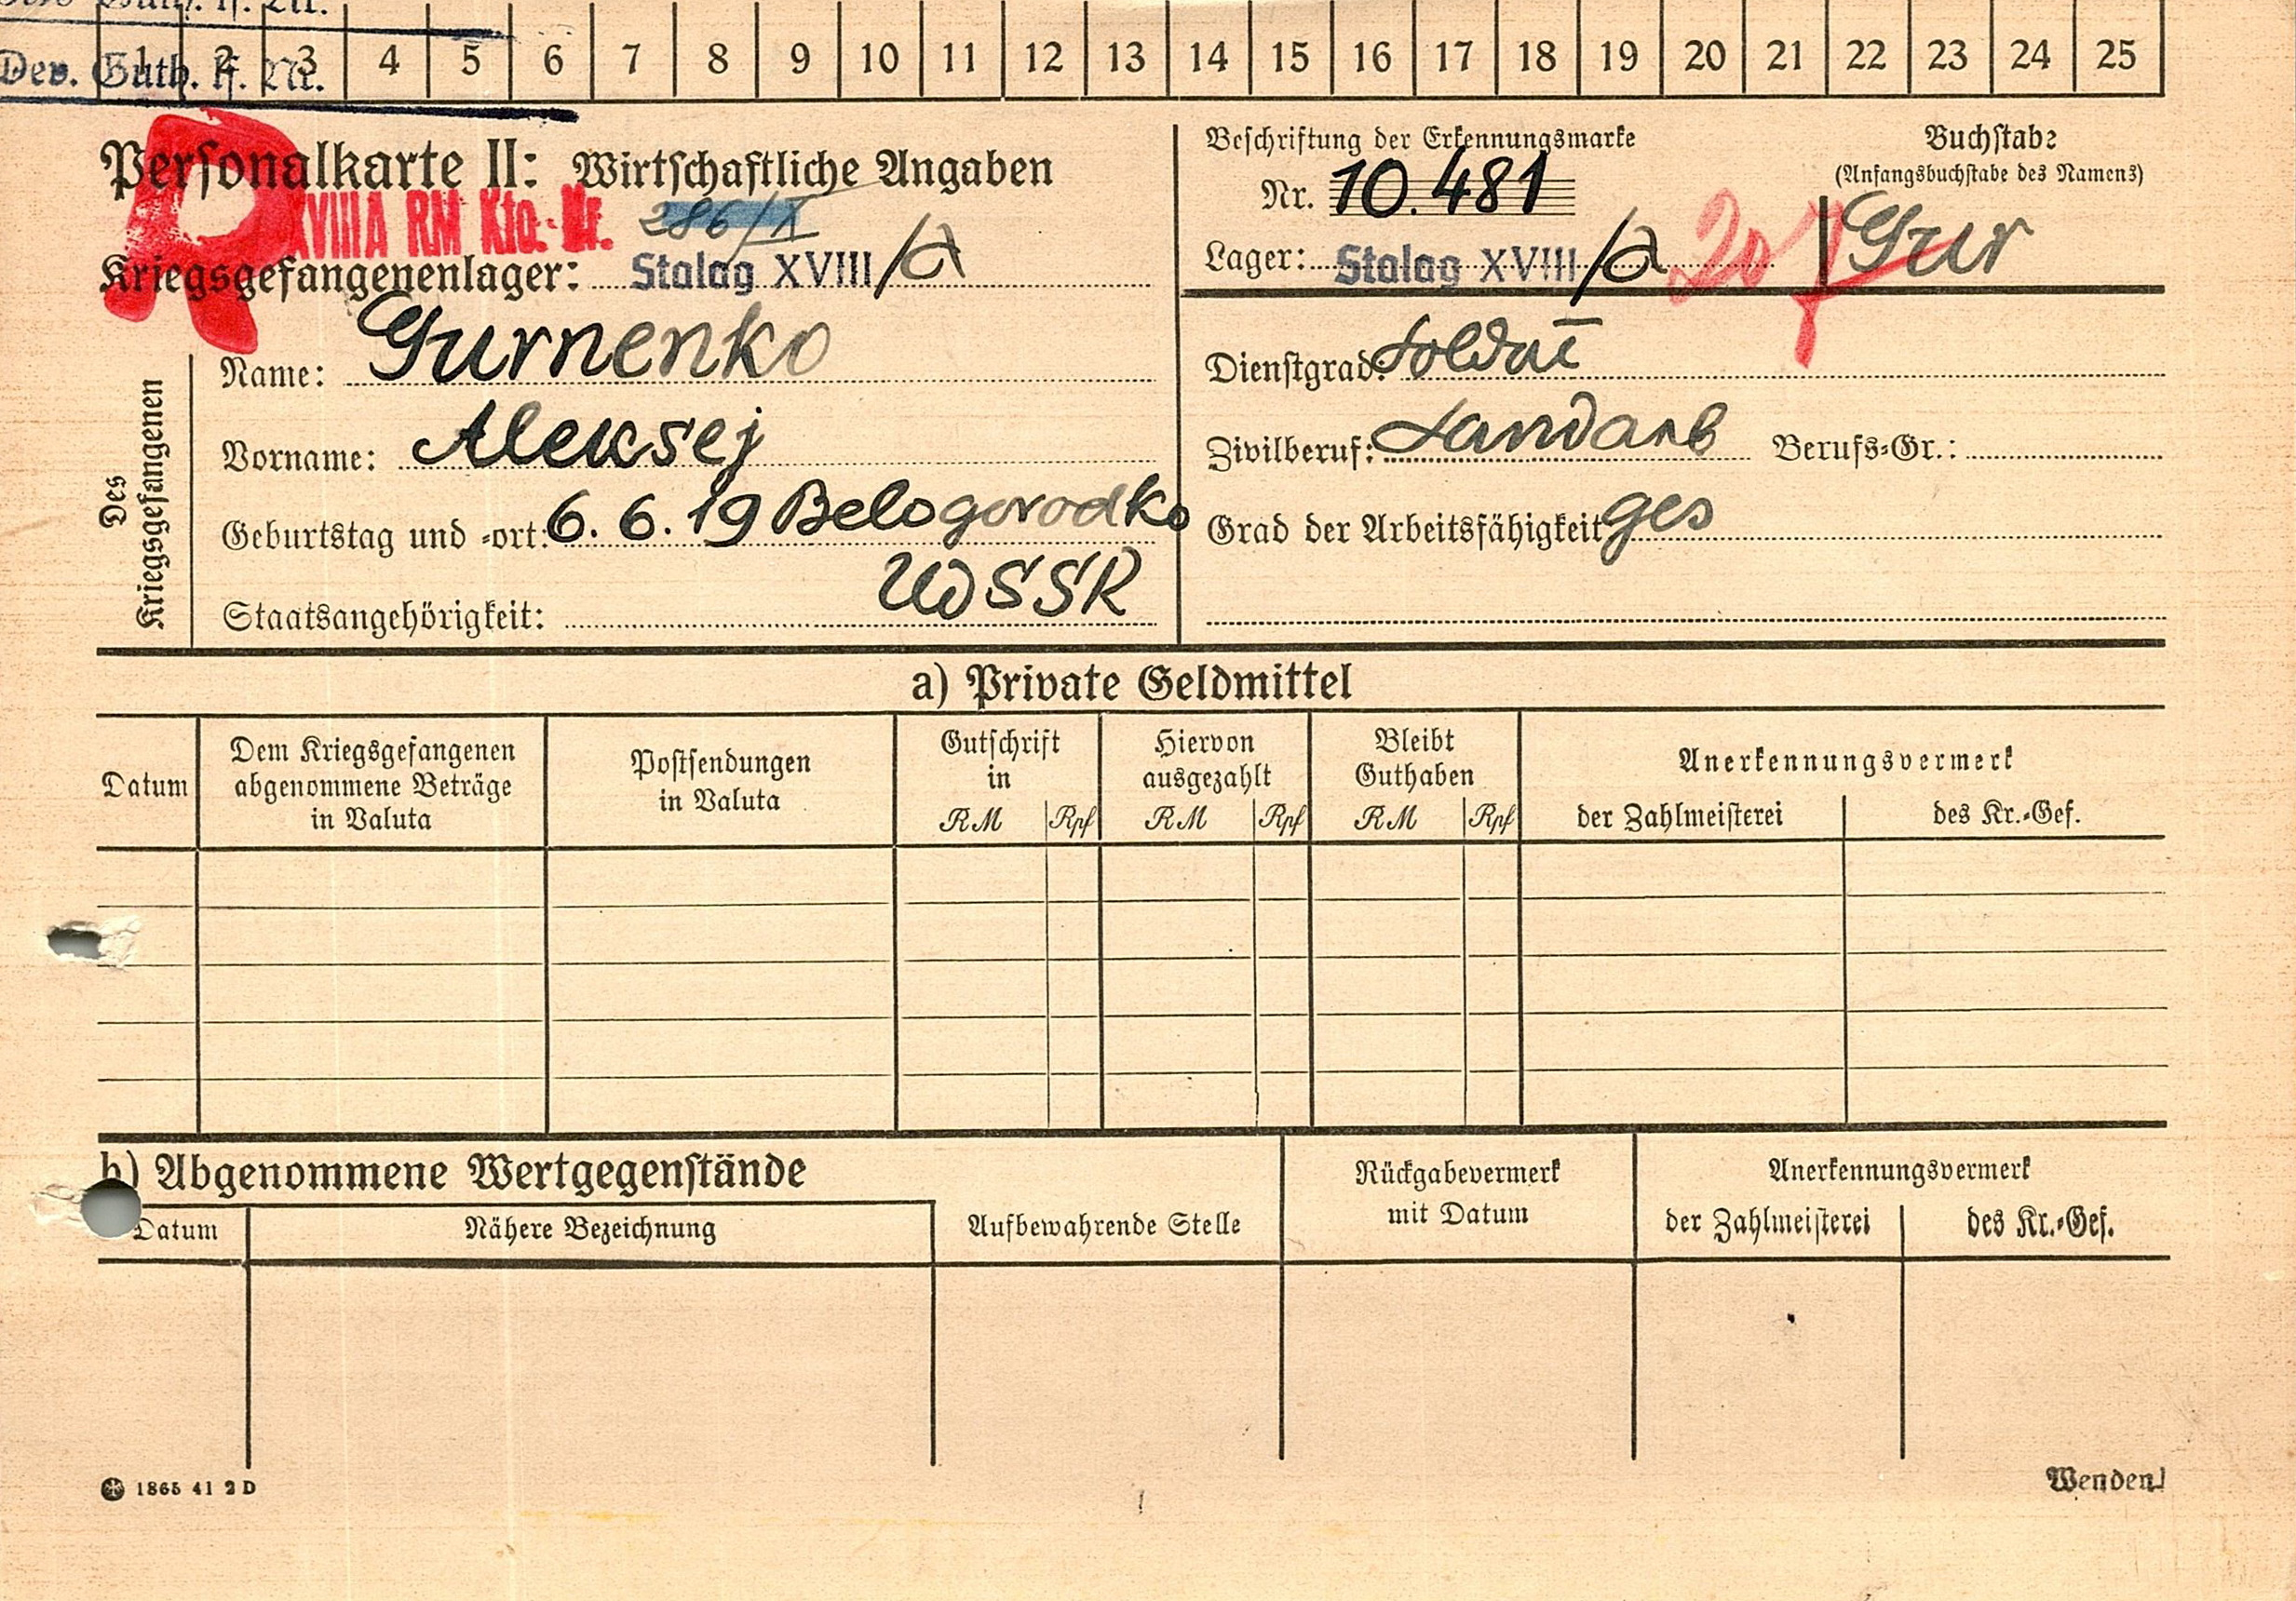 Dev. Guth. lf. Nr.
1 2 3 4 5 6 7 8 9 10 11 12 13 14 15 16 17 18 19 20 21 22 23 24 25
Personalkarte II: Wirtschaftliche Angaben
XVIIIA RM Kto.-Nr. 286/X
Kriegsgefangenenlager: Stalag XVIII/A
Beschriftung der Erkennungsmarke
Nr. 10.481
Lager: Stalag XVIII/A
Buchstabe
(Anfangsbuchstabe des Namens)
Gur
Des Kriegsgefangenen
Name: Gurnenko
Vorname: Aleksej
Geburtstag und -ort: 6. 6. 19 Belogorodko
Staatsangehörigkeit: UdSSR
Dienstgrad: Soldat
Zivilberuf: Landarb Berufs-Gr.:
Grad der Arbeitsfähigkeit ges
a) Private Geldmittel
Datum
Dem Kriegsgefangenen
abgenommene Beträge
in Valuta
Postsendungen
in Valuta
Gutschrift
in
RM Rpf
Hiervon
ausgezahlt
RM Rpf
Bleibt
Guthaben
RM Rpf
Anerkennungsvermerk
der Zahlmeisterei des Kr.-Gef.
b) Abgenommene Wertgegenstände
Datum
Nähere Bezeichnung
Aufbewahrende Stelle
Rückgabevermerk
mit Datum
Anerkennungsvermerk
der Zahlmeisterei des Kr.-Gef.
1865 41 2 D
Wenden!